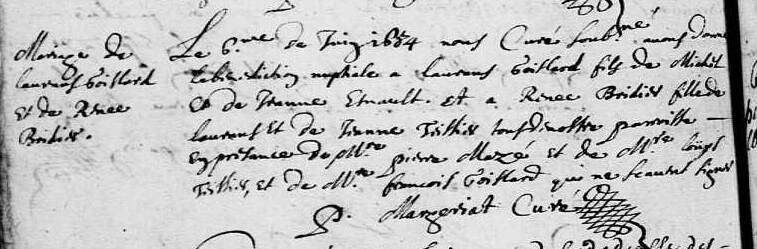 Mariage de
laurens Goillard
Et de Renee
Bridier.
Le 6.me de Juin 1654 nous Curé soub.né avons donne
la benediction nuptiale a laurens Goillard filz de Michel
Et de Jeanne Esnault. et a Renee Bridier fille de
laurens Et de Jeanne Tessier tous de nostre parroisse
En presance de M.re pierre Mazé et de M.re Louys
Tessier, et de M.re francois Goillard qui ne scavent signer
P. Margeriat Curé